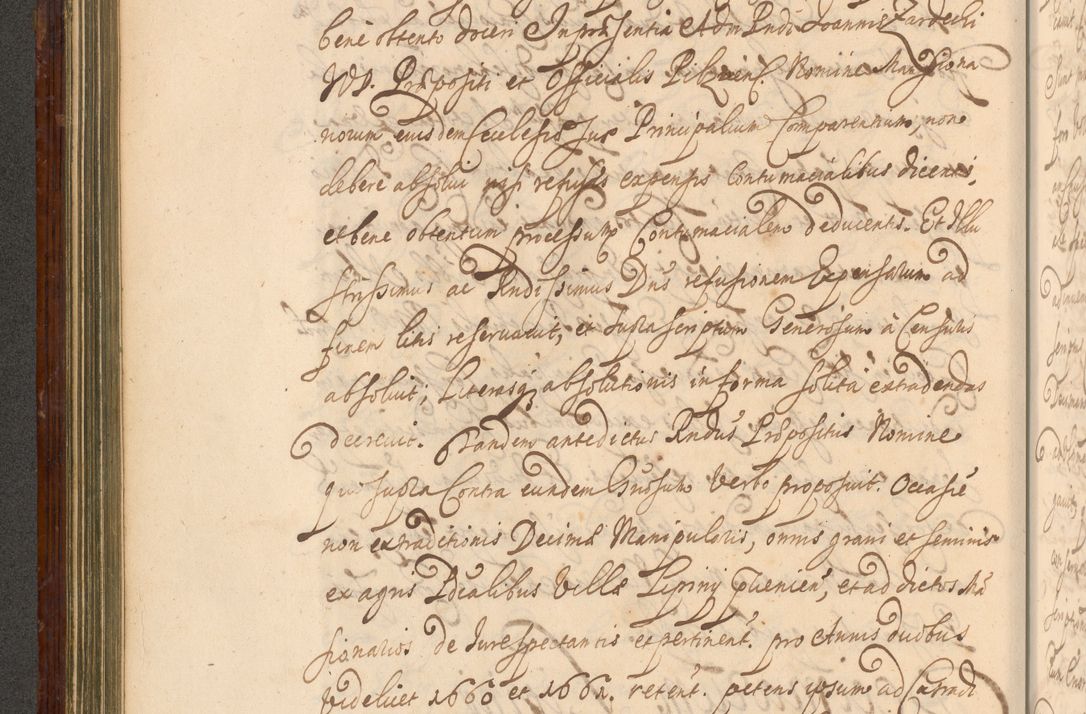 bene obtento doceri In præsentia Adm Rndi Joannis Zardecki
JVD. Præpositi et Officialis Pilznens. Nomine Mansiona
riorum eiusdem Ecclesiæ Suæ Principalium Comparentium, non
debere absolui nisi refusis expensis Contumacialibus dicentis,
et bene obtentum processum Contumacialem deducentis. Et Illu
strissimus ac Rndissimus Dnus refusionem Expensarum ad
finem litis reseruauit, et suprascriptum Generosum à Censuris
absoluit; Literasq; absolutionis in forma solita extradendas
decreuit. Tandem antedictus Rndus Præpositus Nomine
quo supra Contra eundem Gnosum Verbo proposuit. Occasie
non extraditionis Decimæ Manipularis, omnis grani et seminis
ex agris Prdialibus Villæ Lipiny puenien, et ad dictos Mã
sionarios de Jure spectantis et pertinent. pro Annis duobus
videlicet 1660 et 1661. retent. petens ipsum ad Extradi